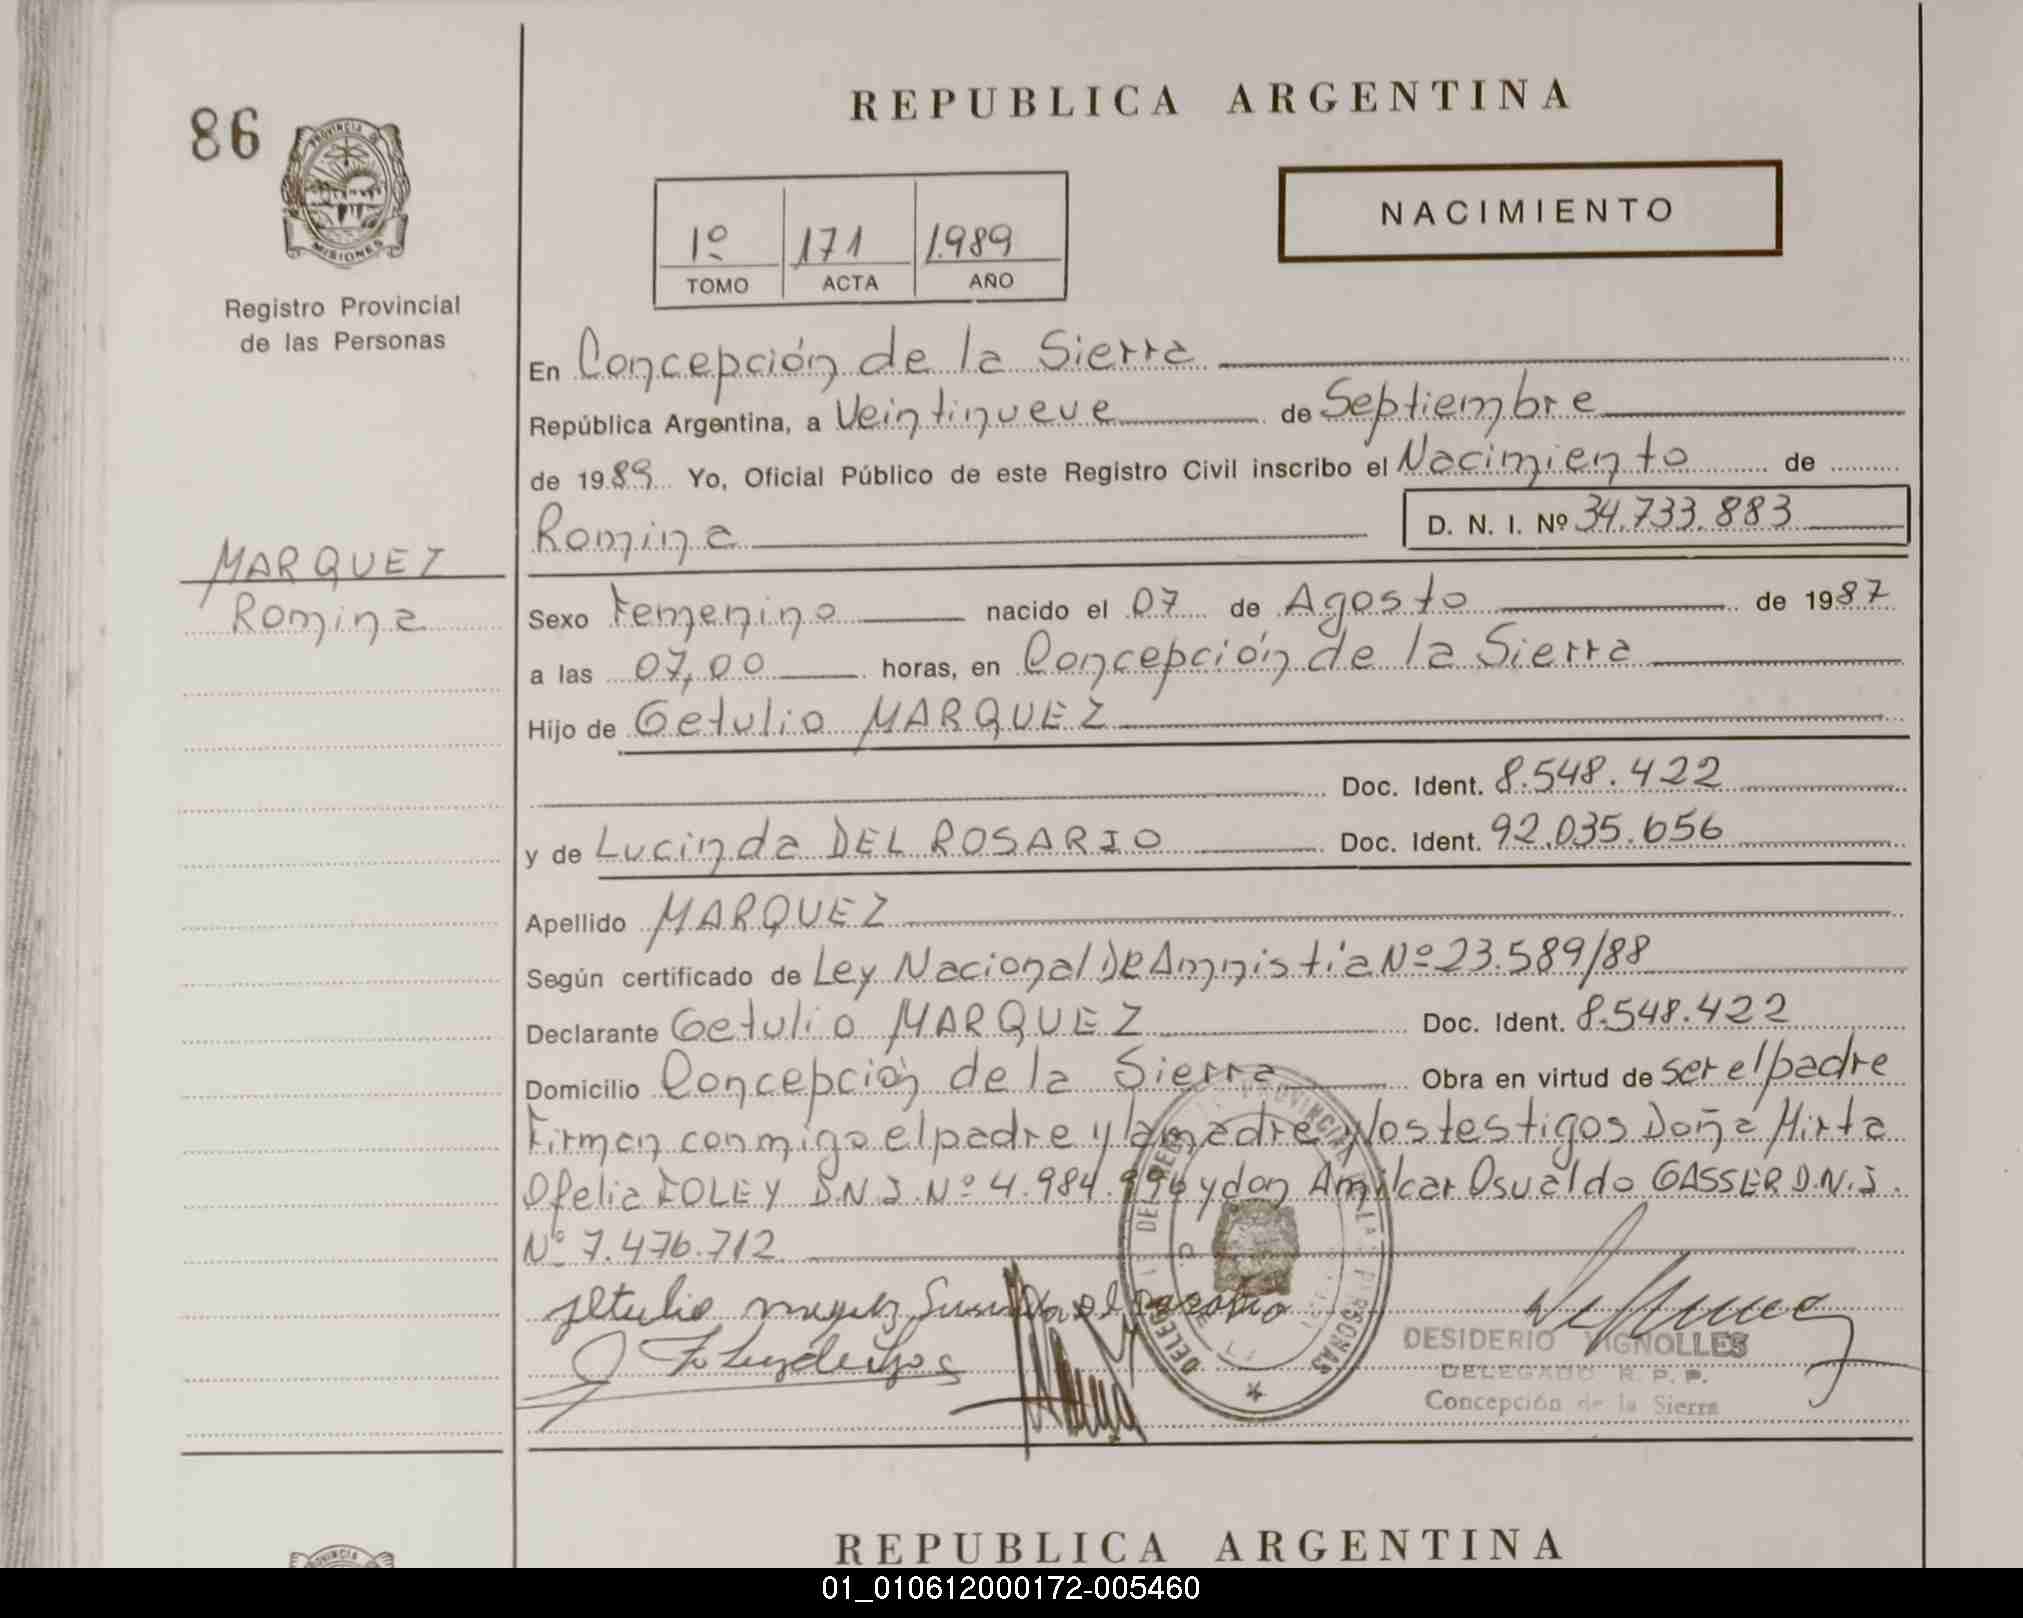 REPUBLICA ARGENTINA
86
PROVINCIA DE
MISIONES
Registro Provincial
de las Personas
NACIMIENTO
1º 171 1.989
TOMO ACTA AÑO
En Concepción de la Sierra
República Argentina, a Veintinueve de Septiembre
de 1989 Yo, Oficial Público de este Registro Civil inscribo el Nacimiento de
Romina D. N. I. Nº 34.733.883
MARQUEZ
Romina
Sexo Femenino nacido el 07 de Agosto de 1987
a las 07,00 horas, en Concepción de la Sierra
Hijo de Getulio MARQUEZ
Doc. Ident. 8.548.422
y de Lucinda DEL ROSARIO Doc. Ident. 92.035.656
Apellido MARQUEZ
Según certificado de Ley Nacional De Amnistía Nº 23.589/88
Declarante Getulio MARQUEZ Doc. Ident. 8.548.422
Domicilio Concepción de la Sierra Obra en virtud de ser el padre
Firman conmigo el padre y la madre y los testigos Doña Mirta
Ofelia FOLEY D.N.I. Nº 4.984.996 y don Amilcar Osvaldo GASSER D.N.I.
Nº 7.476.712
DESIDERIO VIGNOLLES
DELEGADO R. P. P.
Concepción de la Sierra
REPUBLICA ARGENTINA
PROVINCIA
01_010612000172-005460